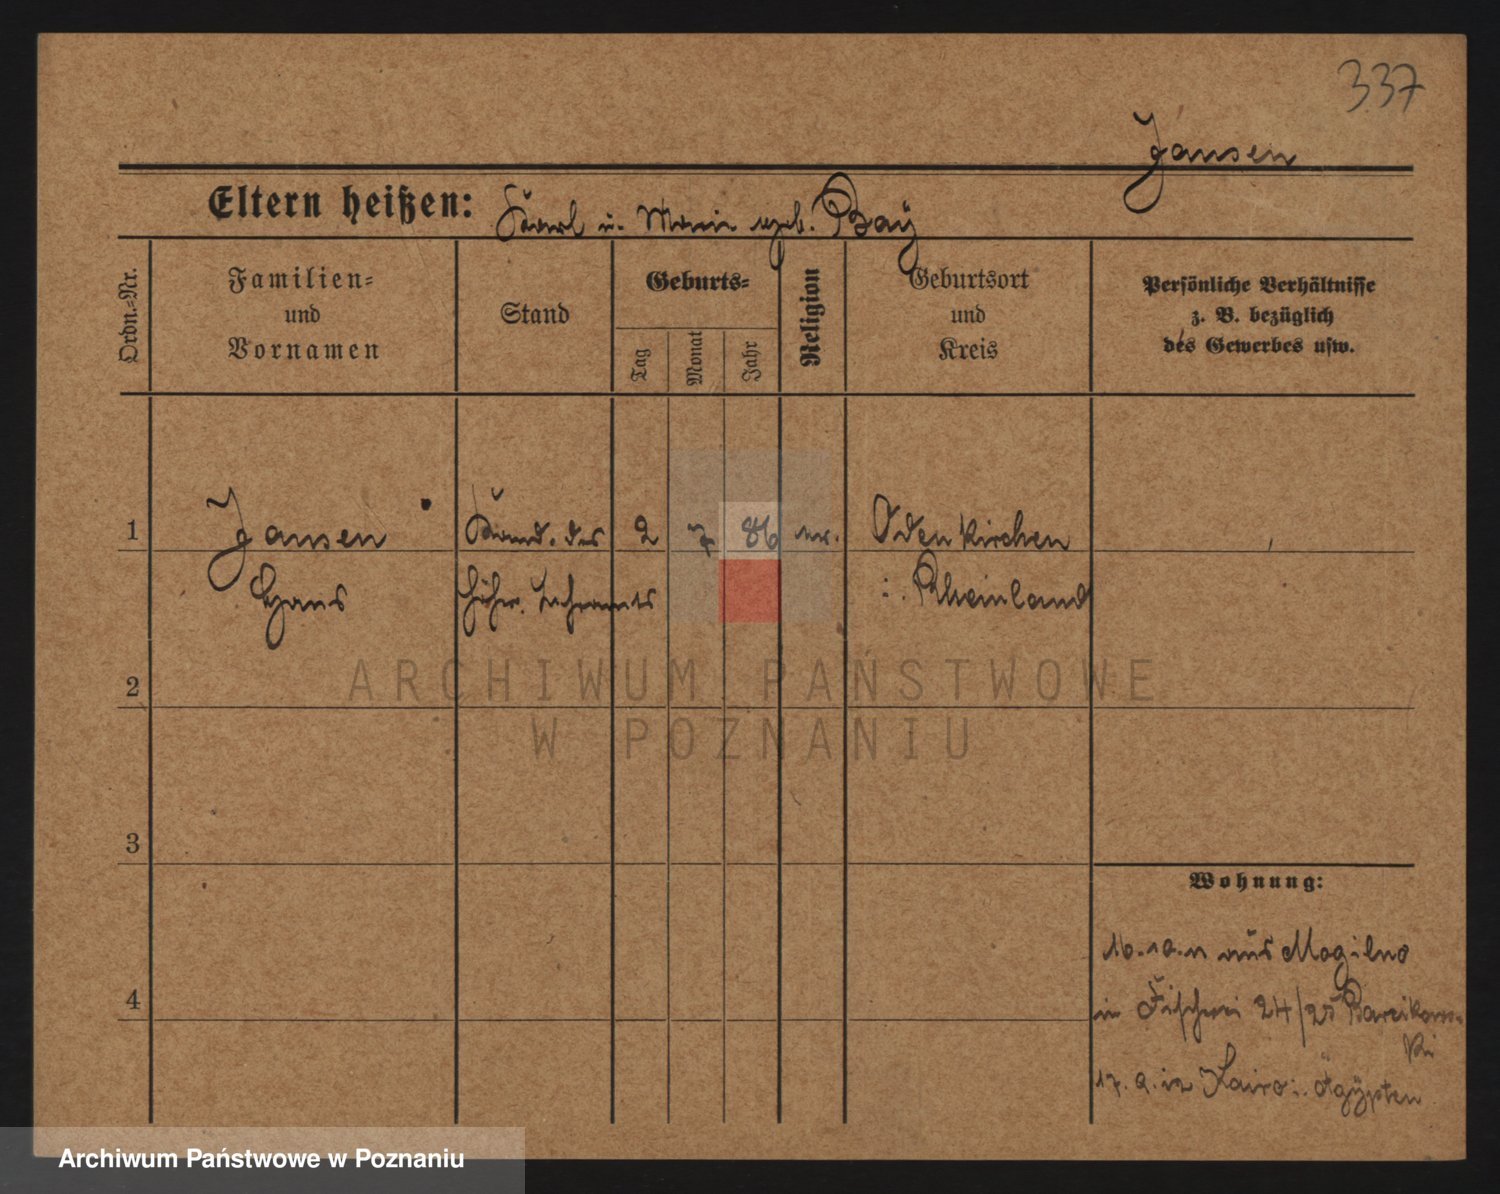 337
Jansen
Eltern heißen: Karl u. Marie geb. Bay
Ordn.-Nr.
Familien-
und
Vornamen
Stand
Geburts-
Tag
Monat
Jahr
Religion
Geburtsort
und
Kreis
Persönliche Verhältnisse
z. B. bezüglich
des Gewerbes usw.
1 Jansen Kand. des 2 7 86 Odenkirchen
Hans höher. Lehramts i. Rheinland
2
ARCHIWUM PAŃSTWOWE
W POZNANIU
3
Wohnung:
16.10.11 aus Mogilno
4
in Fischerei 24/25
ki
in Kairo i. Ägypten
Archiwum Państwowe w Poznaniu